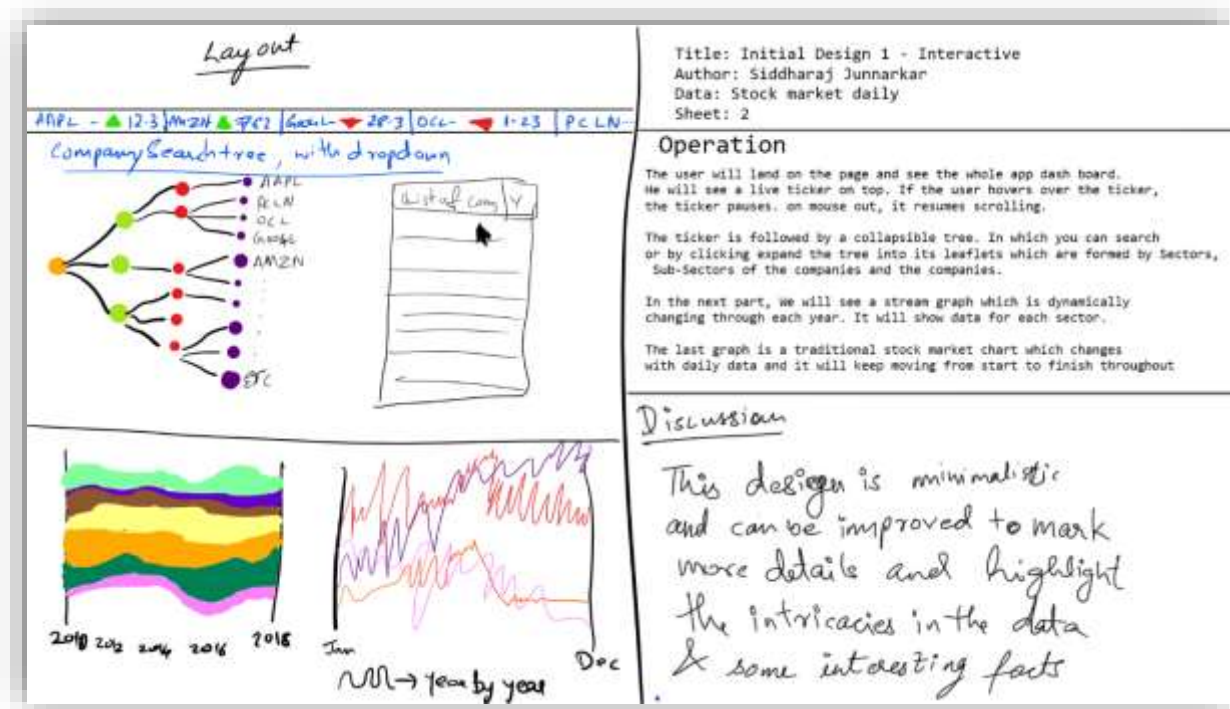 Layout
AAPL - ▲ 12.3 | AMZN ▲ | GOOGL- ▼ 28.3 | OCL- 1.23 | PCLN-
Company Search tree, with dropdown
AAPL
PCLN
OCL
GOOGL
AMZN
ETC
List of Com
2010 2012 2014 2016 2018
Jan
Dec
→ year by year
Title: Initial Design 1 - Interactive
Author: Siddharaj Junnarkar
Data: Stock market daily
Sheet: 2
Operation
The user will land on the page and see the whole app dash board.
He will see a live ticker on top. If the user hovers over the ticker,
the ticker pauses. on mouse out, it resumes scrolling.
The ticker is followed by a collapsible tree. In which you can search
or by clicking expand the tree into its leaflets which are formed by Sectors,
Sub-Sectors of the companies and the companies.
In the next part, We will see a stream graph which is dynamically
changing through each year. It will show data for each sector.
The last graph is a traditional stock market chart which changes
with daily data and it will keep moving from start to finish throughout
Discussion
This design is minimalistic
and can be improved to mark
more details and highlight
the intricacies in the data
& some interesting facts